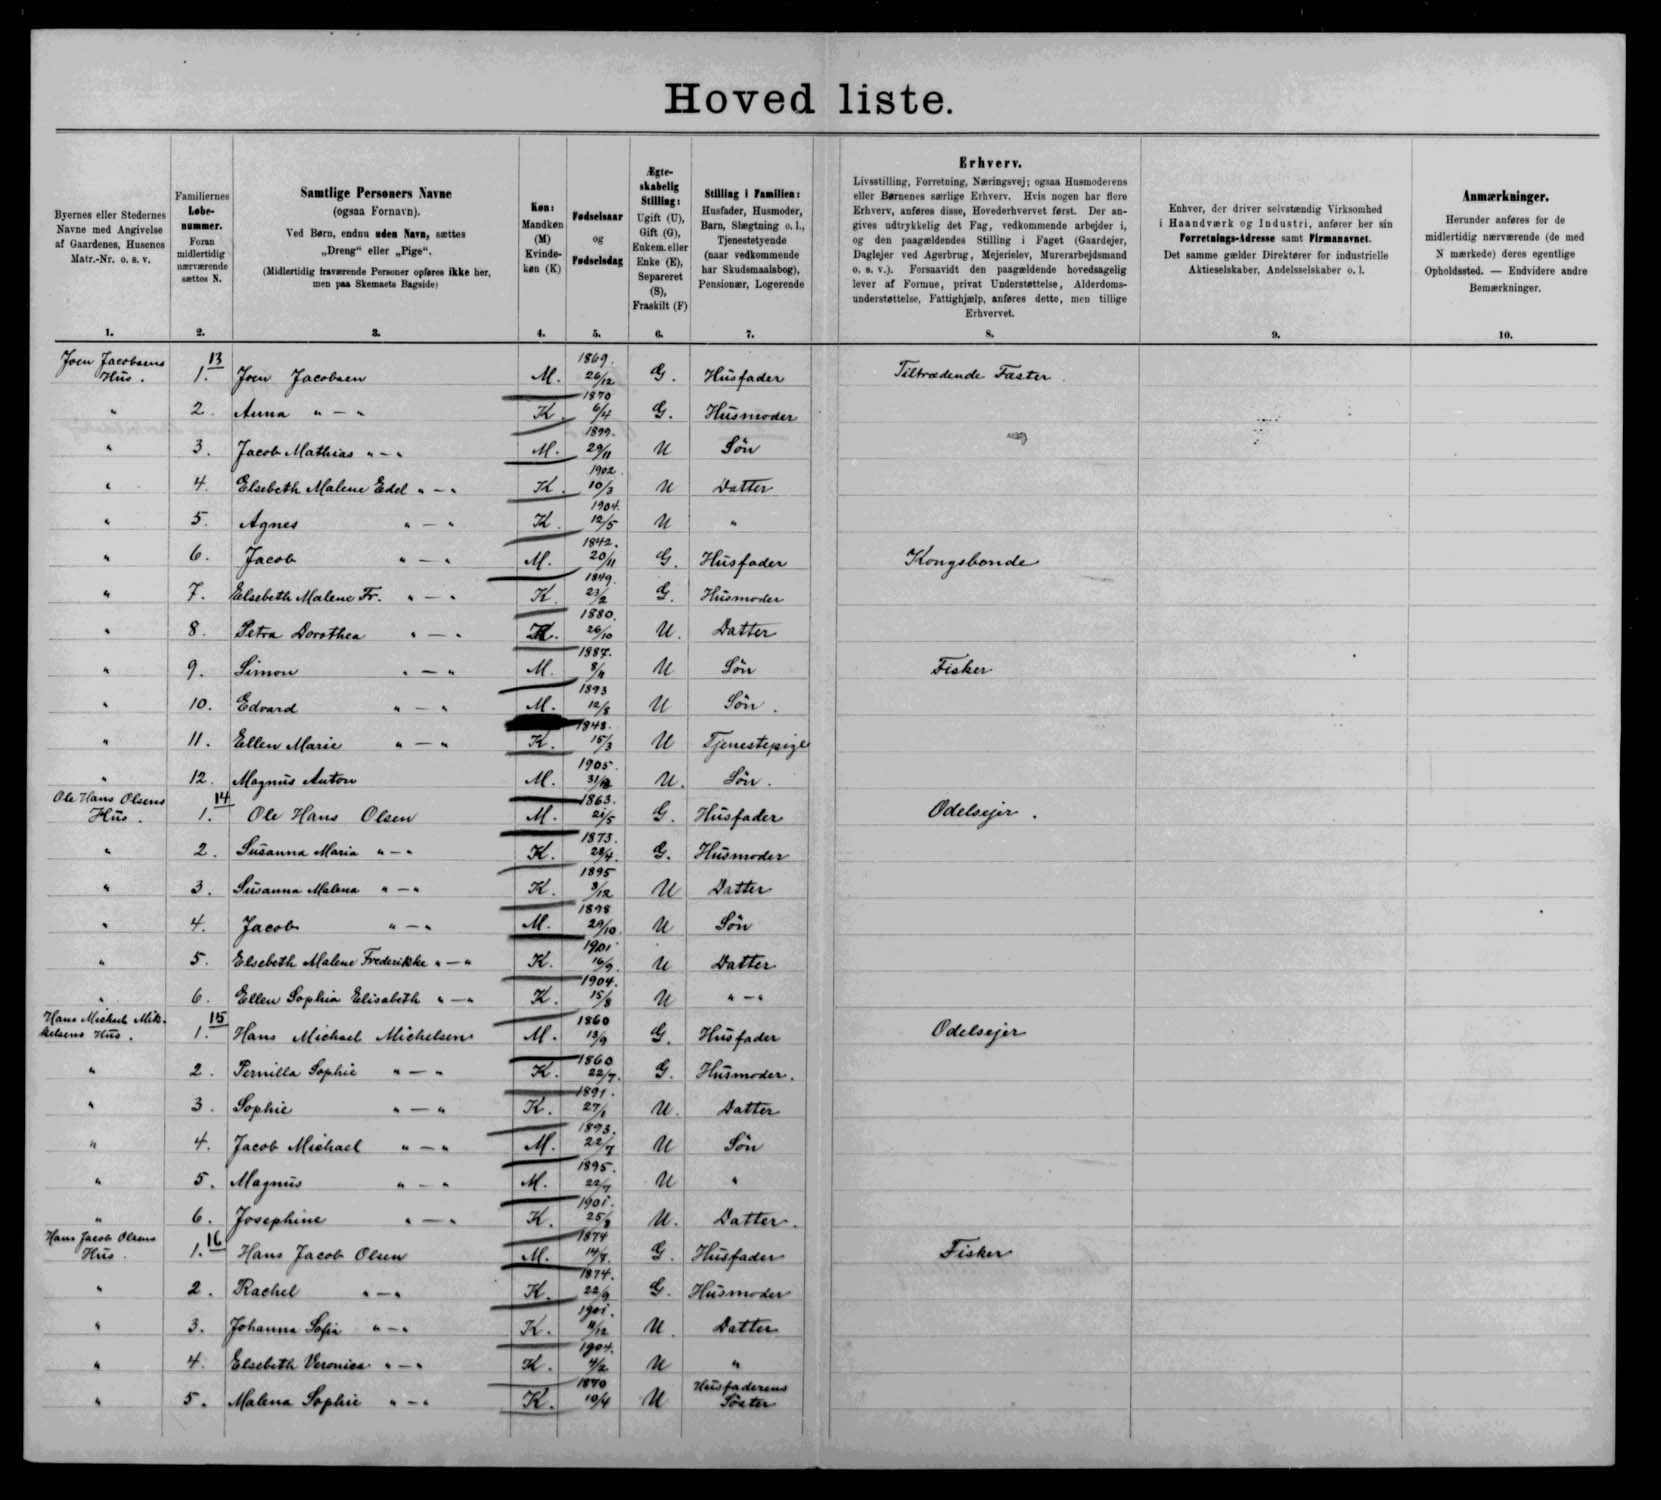 Hoved liste.
Byernes eller Stedernes
Navne med Angivelse
af Gaardenes, Husenes
Matr.-Nr. o. s. v.
1.
Familiernes
Løbe-
nummer.
Foran
midlertidig
nærværende
sættes N.
2.
Samtlige Personers Navne
(ogsaa Fornavn).
Ved Børn, endnu uden Navn, sættes
„Dreng“ eller „Pige“.
(Midlertidig fraværende Personer opføres ikke her,
men paa Skemaets Bagside)
3.
Køn:
Mandkøn
(M)
Kvinde-
køn (K)
4.
Fødselsaar
og
Fødselsdag
5.
Ægte-
skabelig
Stilling:
Ugift (U),
Gift (G),
Enkem. eller
Enke (E),
Separeret
(S),
Fraskilt (F)
6.
Stilling i Familien:
Husfader, Husmoder,
Barn, Slægtning o. l.,
Tjenestetyende
(naar vedkommende
har Skudsmaalsbog),
Pensionær, Logerende
7.
Erhverv.
Livsstilling, Forretning, Næringsvej; ogsaa Husmoderens
eller Børnenes særlige Erhverv. Hvis nogen har flere
Erhverv, anføres disse, Hovederhvervet først. Der an-
gives udtrykkelig det Fag, vedkommende arbejder i,
og den paagældendes Stilling i Faget (Gaardejer,
Daglejer ved Agerbrug, Mejerielev, Murerarbejdsmand
o. s. v.). Forsaavidt den paagældende hovedsagelig
lever af Formue, privat Understøttelse, Alderdoms-
understøttelse, Fattighjælp, anføres dette, men tillige
Erhvervet.
8.
Enhver, der driver selvstændig Virksomhed
i Haandværk og Industri, anfører her sin
Forretnings-Adresse samt Firmanavnet.
Det samme gælder Direktører for industrielle
Aktieselskaber, Andelsselskaber o. l.
9.
Anmærkninger.
Herunder anføres for de
midlertidig nærværende (de med
N mærkede) deres egentlige
Opholdssted. — Endvidere andre
Bemærkninger.
10.
Joen Jacobsens Hus. 13 1. Joen Jacobsen M. 1869. 26/12 G. Husfader Tiltrædende Fæster
" 2. Anna " — " K. 1870 6/4 G. Husmoder
" 3. Jacob Mathias " — " M. 1899. 29/11 U Søn
" 4. Elsebeth Malene Edel " — " K. 1902. 10/3 U Datter
" 5. Agnes " — " K. 1904. 12/5 U "
" 6. Jacob " — " M. 1842. 20/11 G. Husfader Kongsbonde
" 7. Elsebeth Malene Fr. " — " K. 1849. 23/2 G. Husmoder
" 8. Petra Dorothea " — " K. 1880. 26/10 U. Datter
" 9. Simon " — " M. 1887. 8/11 U Søn Fisker
" 10. Edvard " — " M. 1893 12/8 U Søn.
" 11. Ellen Marie " — " K. 1848. 15/3 U Tjenestepige
" 12. Magnus Anton M. 1905. 31/12 U. Søn.
Ole Hans Olsens Hus. 14 1. Ole Hans Olsen M. 1863. 21/5 G. Husfader Odelsejer.
" 2. Susanna Maria " — " K. 1873. 28/4. G. Husmoder
" 3. Susanna Malena " — " K. 1895 3/12 U Datter
" 4. Jacob " — " M. 1898 29/10. U Søn
" 5. Elsebeth Malene Frederikke " — " K. 1901 16/9. U Datter
" 6. Ellen Sophia Elisabeth " — " K. 1904. 15/8 U " — "
Hans Michael Mik-
kelsens Hus. 15 1. Hans Michael Michelsen M. 1860 13/9 G. Husfader Odelsejer
" 2. Pernilla Sophie " — " K. 1860 22/7. G. Husmoder.
" 3. Sophie " — " K. 1891. 27/1 U. Datter
" 4. Jacob Michael " — " M. 1893. 22/7 U Søn
" 5. Magnus " — " M. 1895. 22/7 U "
" 6. Josephine " — " K. 1901. 25/8 U. Datter.
Hans Jacob Olsens Hus. 16 1. Hans Jacob Olsen M. 1874 14/7. G. Husfader Fisker
" 2. Rachel " — " K. 1874. 22/9 G. Husmoder
" 3. Johanna Sofie " — " K. 1901. 11/12 U. Datter
" 4. Elsebeth Veronica " — " K. 1904. 4/2 U "
" 5. Malena Sophie " — " K. 1870 10/4 U Husfaderens Søster